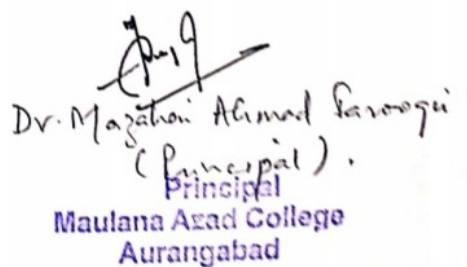 Dr. Mazahar Ahmad Farooqui
(Principal).
Principal
Maulana Azad College
Aurangabad